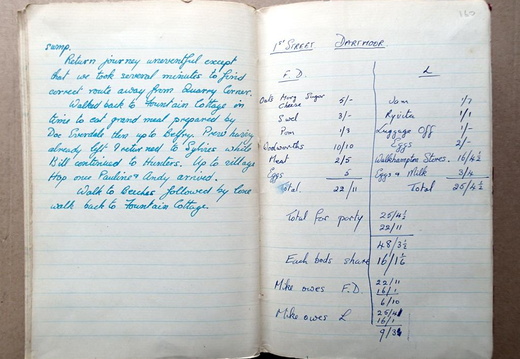 sump.
Return journey uneventful except
that we took several minutes to find
correct route away from Quarry Corner.
Walked back to Fountain Cottage in
time to eat grand meal prepared by
Doc then up to Belfry. Prew having
already left I returned to while
Bill continued to Hunters. Up to village
Hop once Pauline & Andy arrived.
Walk to Beeches followed by
walk back to Fountain Cottage.
169
1st STREET DARTMOOR.
F.D.
Oats Sugar
Cheese 5/-
Swel 3/-
Pan 1/3
Woodworths 10/10
Meat 2/5
Eggs 5
Total. 22/11
L
Jam 1/7
Ryvita 1/1
Luggage Off 1/-
Eggs 2/-
Walkhampton Stores. 16/4½
Eggs & Milk 3/4
Total 25/4½
Total for party 25/4½
22/11
48/3½
Each bods share 16/1½
Mike owes F.D. 22/11
16/1
6/10
Mike owes L 25/4
16/1
9/3